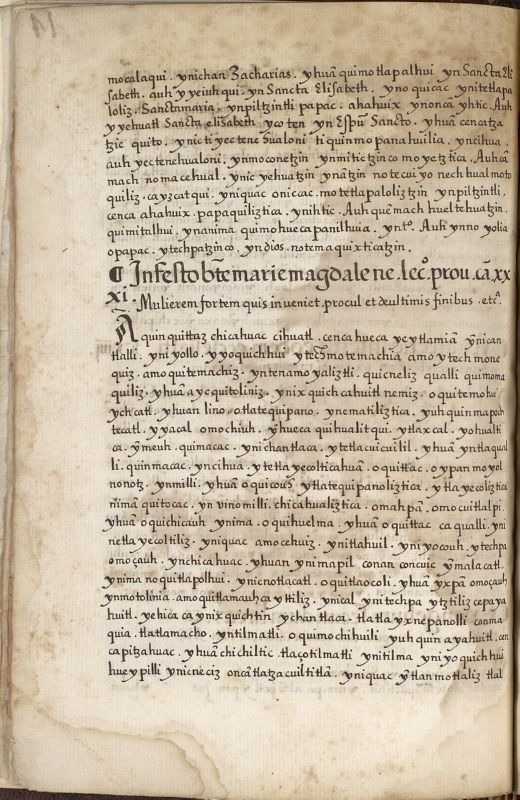 mocalaqui. ynichan Zacharias. yhuā quimotlapalhui yn Sancta Eli
sabeth. auh yyeiuh qui. yn Sancta Elisabeth. yno quicac ynitetlapa
loliz. Sanctamaria. ynpiltzintli papac. ahahuix ynoncā yhtic. Auh
yyehuatl Sancta elisabeth yco ten yn Espũ Sancto. yhuā cencatza
tzic quito. ynic ti yectene hualoni ti quin mo panahuilia. yncihua.
auh yectenehualoni. ynmoconetzin ynmitictzinco mo yetztica. Auh cā
mach nomacehual. ynic yehuatzin ynātzin notecuiyo nech hual moto
quiliz. ca yz catqui. yniquac oniccac. motetlapaloliztzin ynpiltzintli.
cenca ahahuix. papaquiliztica. ynihtic. Auh quēmach huel tehuatzin.
quimitalhui. ynanima quimohueca panilhuia. yntº. Auh ynno yolia
opapac. ytechpatzinco. yn dios. notemaquixticatzin.
¶ In festo bte marie magdalene. lecº. prou. cā. xx
xi. Mulierem fortem quis inveniet. procul et de ultimis finibus. etcª.
Aquin quittaz chicahuac cihuatl. cenca hueca yc ytlamiā ynican
tlalli. yni yollo. yyoquichhui ytech motemachia amo ytech mone
quiz. amo quitemachiz. yntenamoyaliztli. quicneliz qualli quimoma
quiliz. yhuā ayc quitoliniz. ynixquichcahuitl nemiz. oquitemohu
ychcatl. yhuan lino. otlatequipano. ynematiliztica. yuhquin mapoch
tecatl. yyacal omochiuh. yhueca quihualitqui. ytlaxcal. yohualti
ca. ymeuh. quimacac. ynichantlaca. ytetlacuicuilil. yhuā yntlaqual
li. quinmacac. yncihua ytetlayecolticahuā. oquittac. oypan moyol
nonotz. ynmilli. yhuā oquicouh ytlatequipanoliztica. ytlayecoliztica
nīmā quitocac. yn vinomilli. chicahualiztica. omahpā. omocuitlalpi.
yhuā oquichicauh ynima. oquihuelma. yhuā oquittac ca qualli. yni
netlayecoltiliz. yniquac amo cehuiz. ynitlahuil. yniyocouh. ytechpa
omoçauh. ynchicahuac. yhuan ynimapil conan concuic ymalacatl.
ynima noquitlapolhui. ynicnotlacatl. oquitlaocoli. yhuā yxpā omoçauh
ynmotolinia. amo quitlamauhcayttiliz. ynical ynitechpa ytztiliz cepaya
huitl. yehica ca ynixquichtin ychantlaca. tlatlayxnepanolli conma
quia. tlatlamacho. yntilmatli. oquimochihuili yuhquin ayahuitl. cen
ca pitzahuac. yhuā chichiltic tlaçotilmatli ynitilma yniyoquichhui
huey pilli ynicneciz oncā tlatzacuiltitlā. yniquac ytlan motlaliz tlal